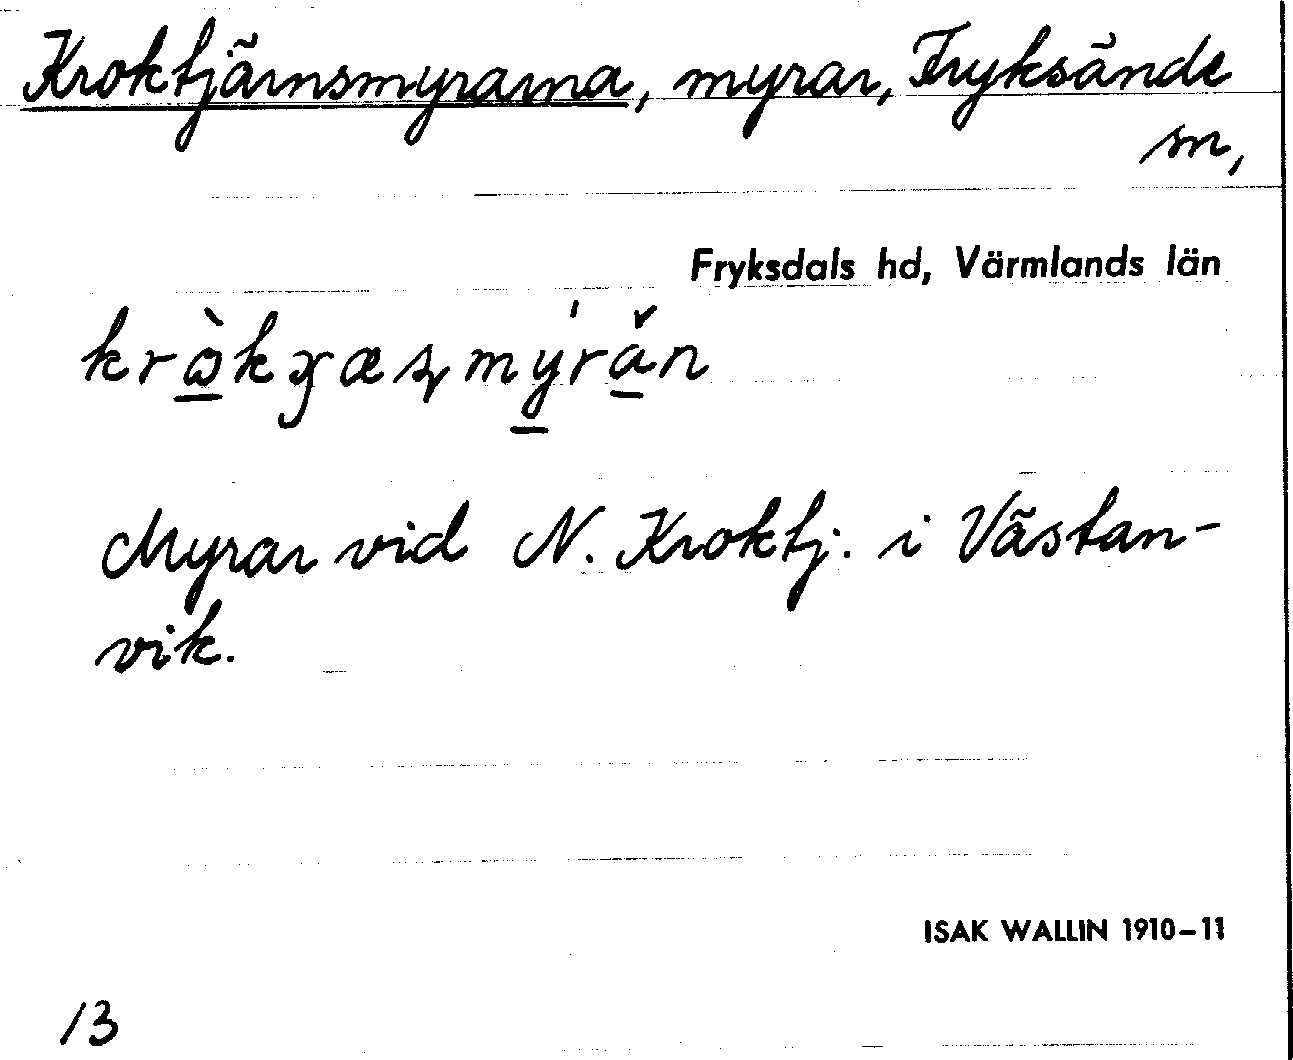 Kroktjärnsmyrarna, myrar, Fryksände
sn,
Fryksdals hd, Värmlands län
Myrar vid N. Kroktj. i Västan-
vik.
ISAK WALLIN 1910-11
13